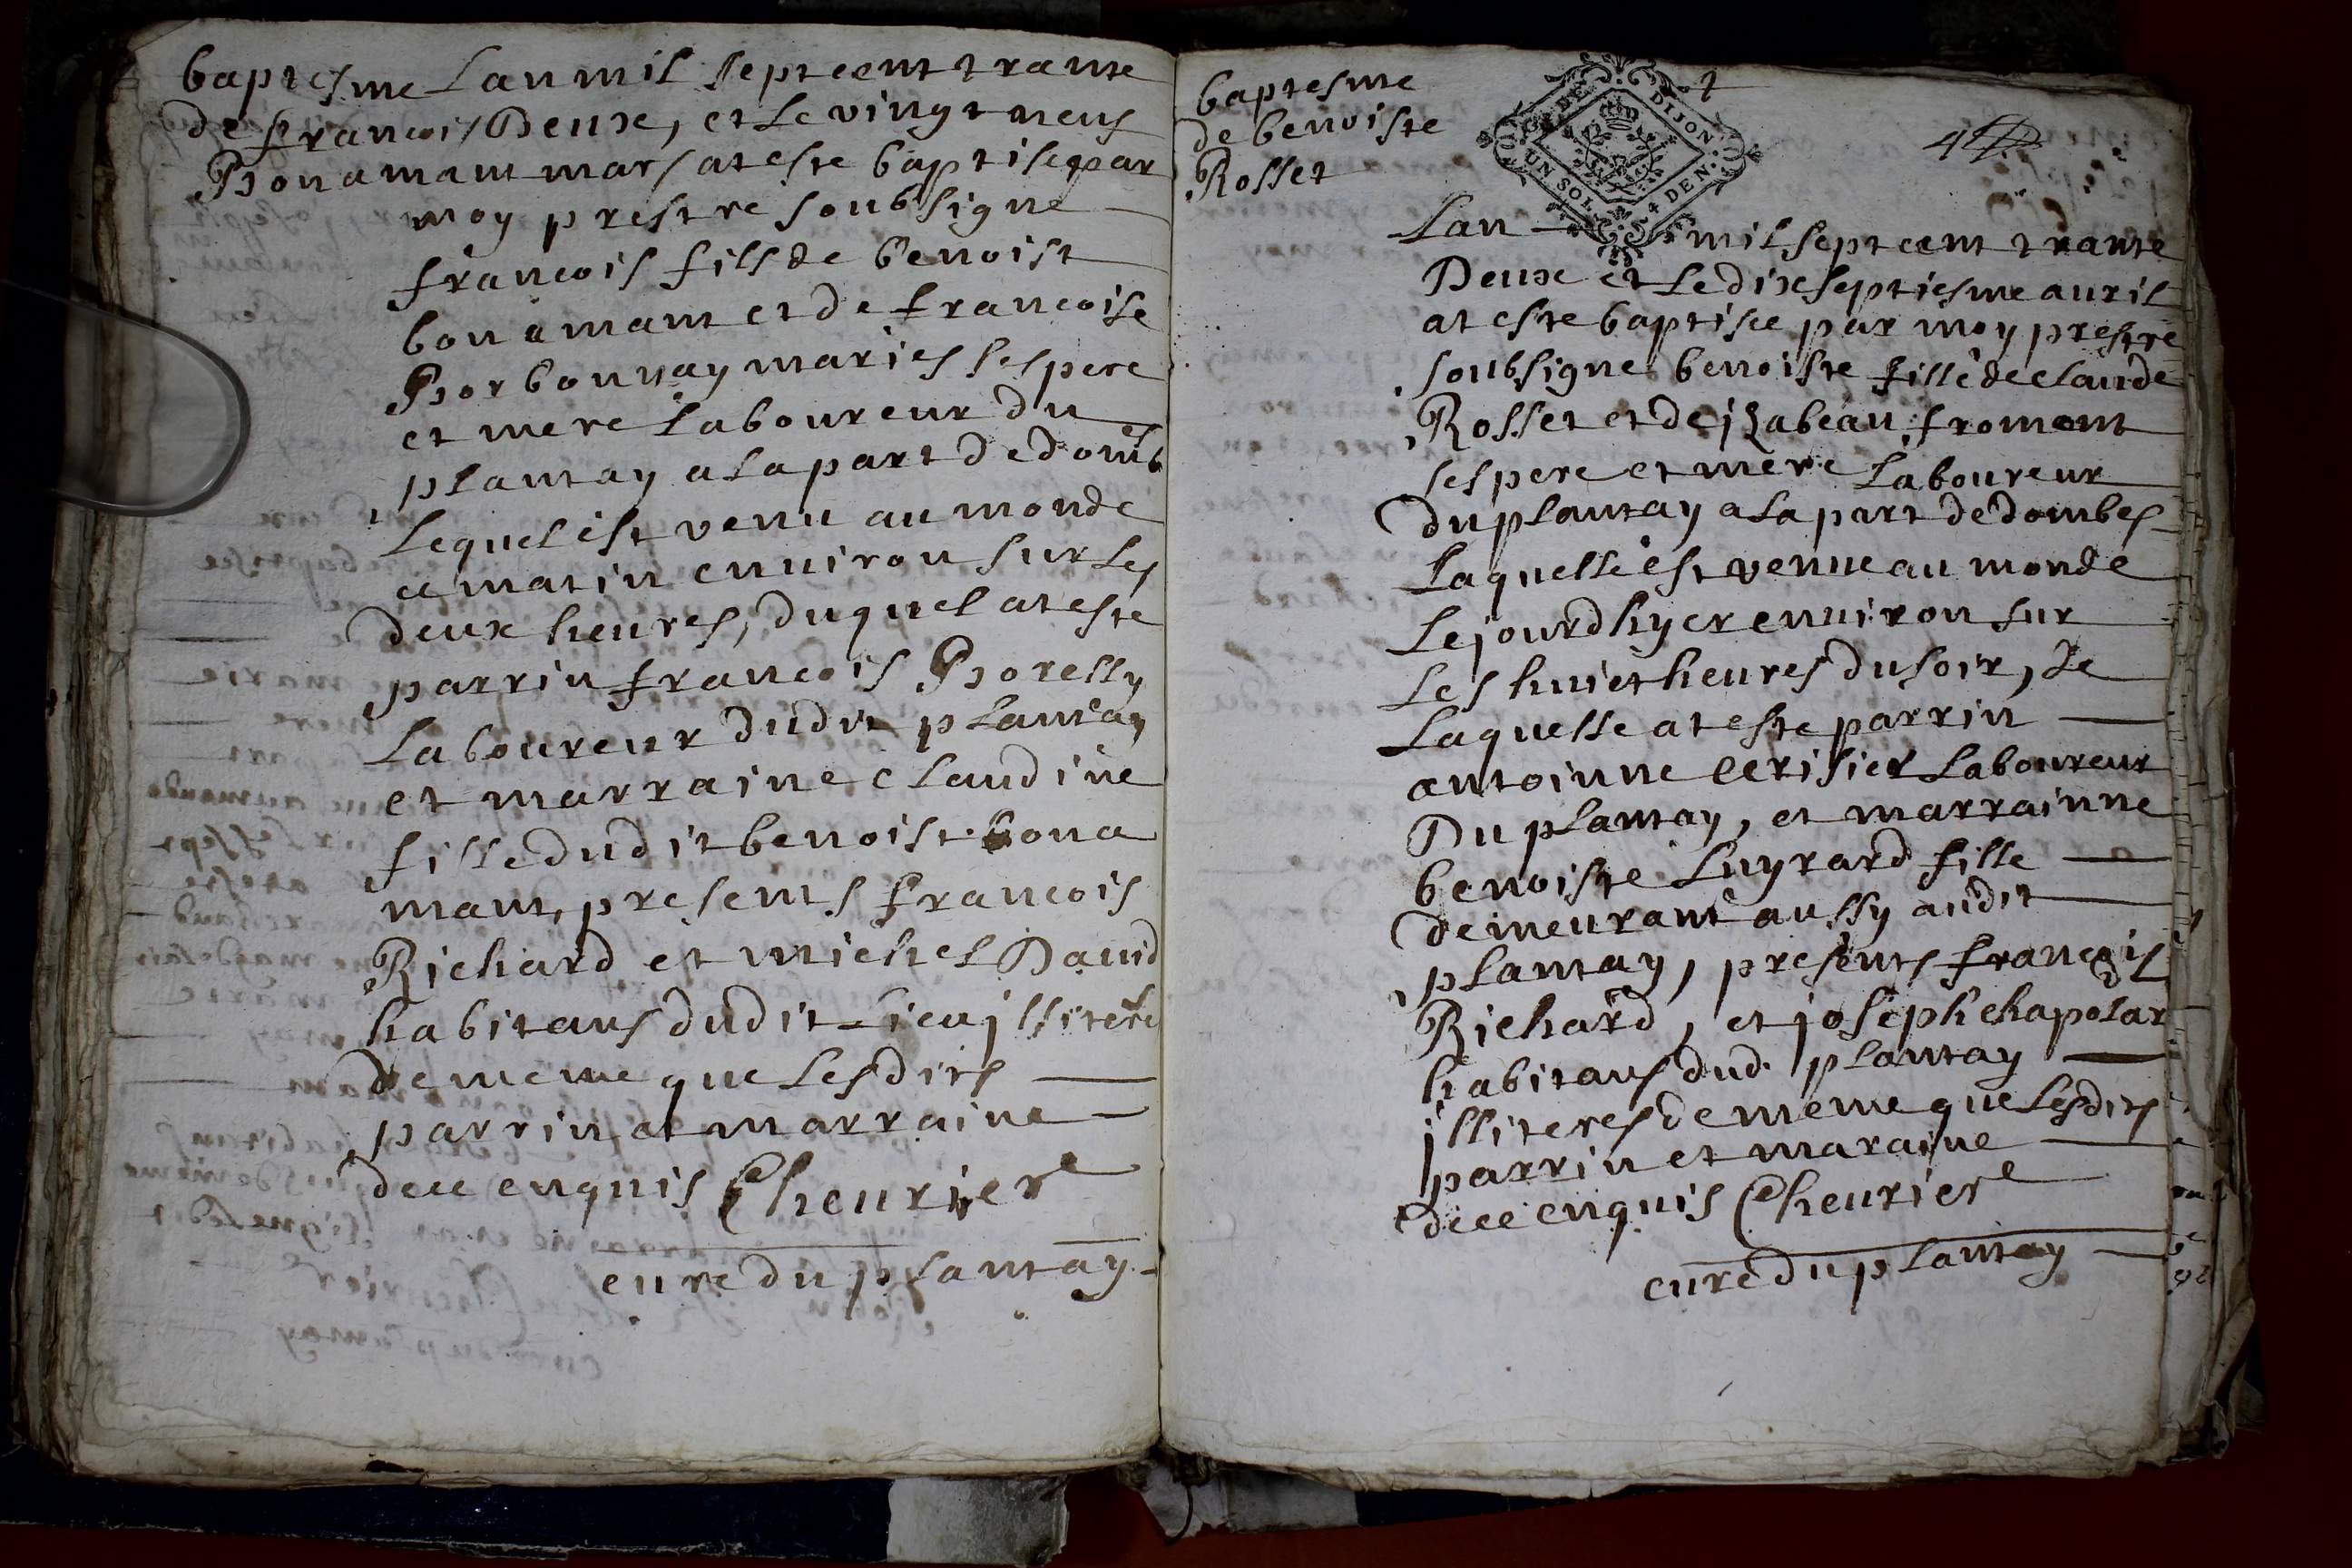 baptesme Lan mil sept cent trante
de francois Deux, et Le vingt neuf
Bonamant mars at este baptise par
moy prestre soubsigne
francois fils de benoist
bonamant et de francoise
Borbonnay maries ses pere
et mere Laboureur du
plantay a La part de domb
Lequel est venu au monde
ce matin environ sur Les
deux heures, duquel at este
parrin francois Borelly
Laboureur dudit plantay
et marraine Claudine
fille dudit benoist bona
mant, presents francois
Richard et michel David
habitans dudit Lieu jlliteré
de meme que Lesdits
parrin et marraine
de ce enquis Cheurier
cure du plantay
baptesme
de benoiste
Rosset
G. DE DIJON
UN SOL 4 DEN
Lan mil sept cent trante
Deux et Le dixseptiesme auril
at este baptisee par moy prestre
soubsigne benoiste fille de claude
Rosset et de jzabeau froment
ses pere et mere Laboureur
du plantay a La part de dombes
Laquelle est venue au monde
Le jourdhyer enuiron sur
Les huict heures du soir, de
Laquelle at este parrin
antoinne Cerisier Laboureur
Du plantay, et marrainne
benoiste Luyrard fille
demeurant aussy audit
plantay, presents francois
Richard, et joseph chapolar
habitans dud. plantay
jlliteres de meme que Lesdits
parrin et maraine
de ce enquis Cheurier
curé du plantay